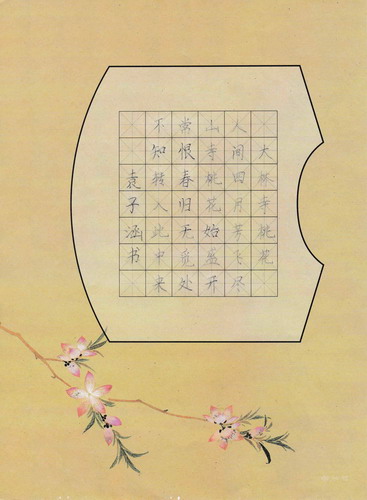 大林寺桃花
人间四月芳飞尽
山寺桃花始盛开
常恨春归无觅处
不知转入此中来
袁子涵书